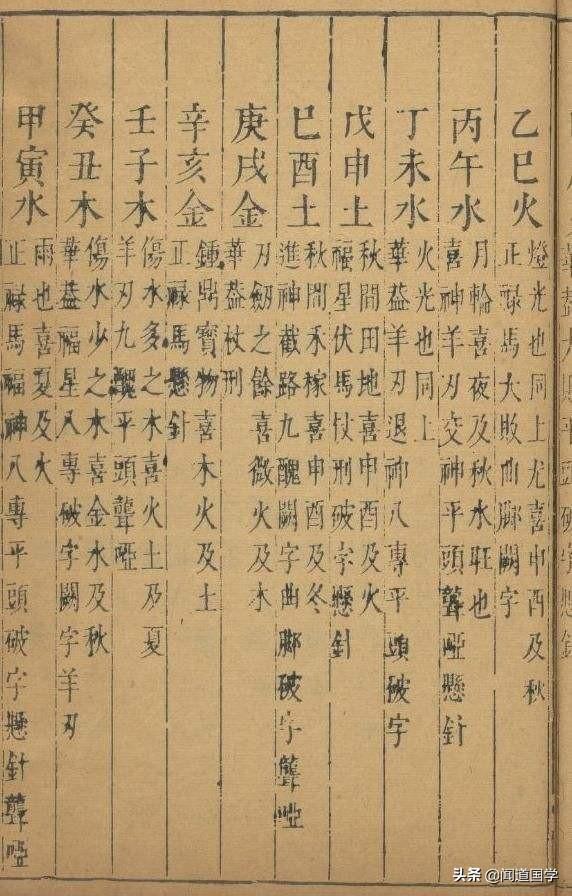 乙巳火
燈光也同上尤喜申酉及秋
正祿馬大敗曲脚闕字
丙午水
月輪喜夜及秋水旺也
喜神羊刃交神平頭聾啞懸針
丁未水
火光也同上
華蓋羊刃退神八專平頭破字
戊申土
秋間田地喜申酉及火
福星伏馬仗刑破字懸針
巳酉土
秋間禾稼喜申酉及冬
進神截路九醜闕字曲脚破字聾啞
庚戌金
刃劒之餘喜微火及水
華蓋杖刑
辛亥金
鍾鼎寶物喜木火及土
正祿馬懸針
壬子木
傷水多之木喜火土及夏
羊刃九醜平頭聾啞
癸丑木
傷水少之木喜金水及秋
華蓋福星八專破字闕字羊刃
甲寅水
雨也喜夏及火
正祿馬福神八專平頭破字懸針聾啞
头条@闻道国学